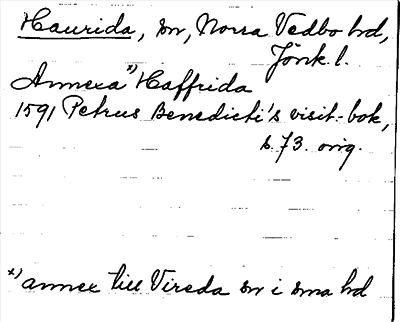 Haurida, sn, Norra Vedbo hd,
Jönk. l.
Annexa x) Haffrida
1591 Petrus Benedicti's visit.-bok,
s. 73. orig.
x) annex till Vireda sn i sma hd